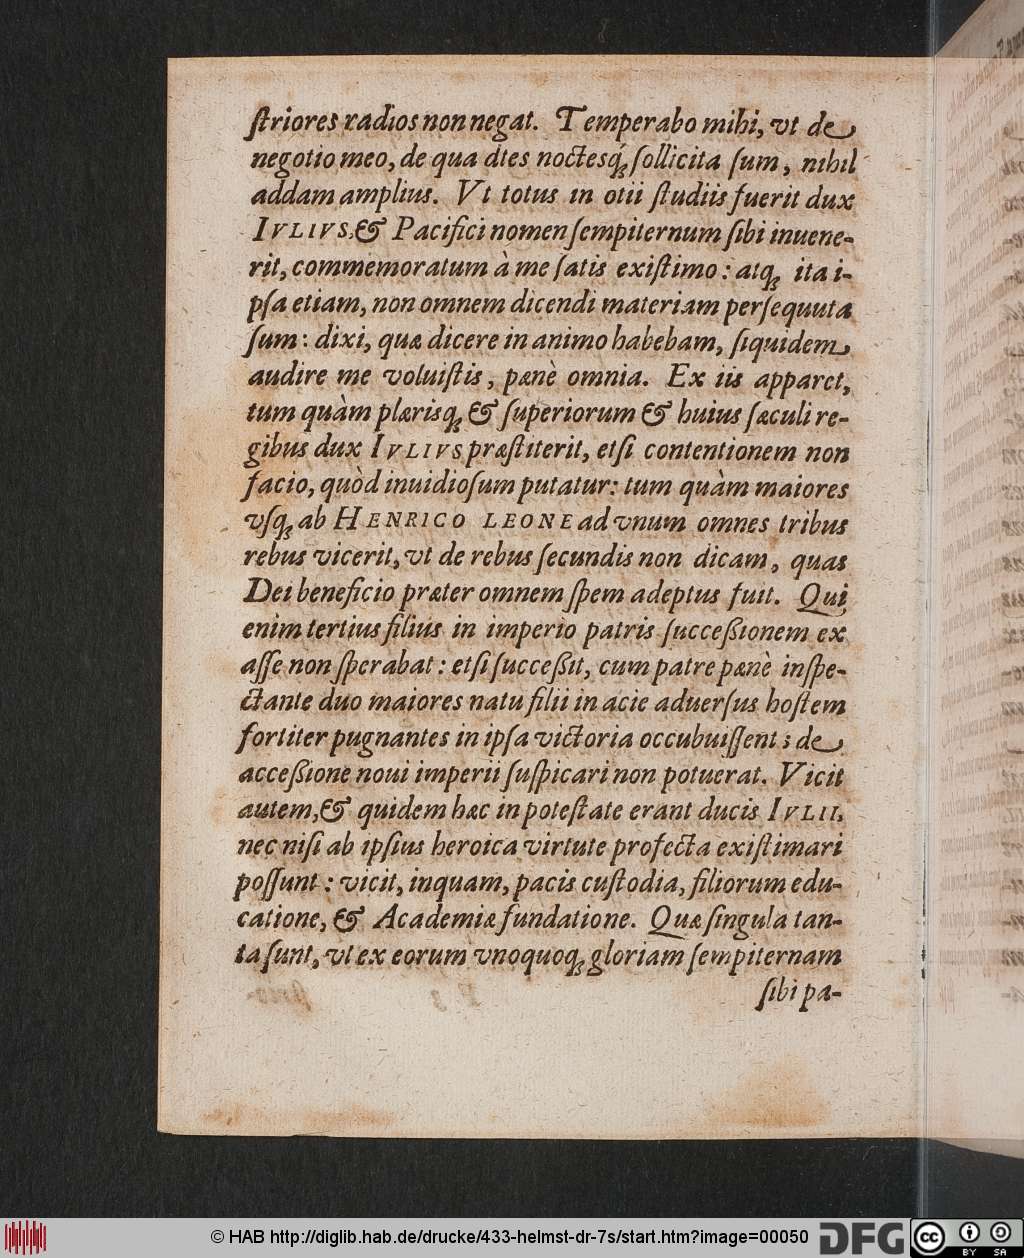 ſtriores radios non negat. Temperabo mihi, vt de
negotio meo, de qua dies noctesq́ꝫ ſollicita ſum, nihil
addam amplius. Vt totus in otii ſtudiis fuerit dux
IVLIVS, & Pacifici nomen ſempiternum ſibi inuene-
rit, commemoratum à me ſatis exiſtimo: atqꝫ ita i-
pſa etiam, non omnem dicendi materiam perſequuta
ſum: dixi, quæ dicere in animo habebam, ſiquidem
audire me voluiſtis, pænè omnia. Ex iis apparet,
tum quàm plærisqꝫ & ſuperiorum & huius ſæculi re-
gibus dux IVLIVS præſtiterit, etſi contentionem non
facio, quòd inuidioſum putatur: tum quàm maiores
vſqꝫ ab HENRICO LEONE ad vnum omnes tribus
rebus vicerit, vt de rebus ſecundis non dicam, quas
Dei beneficio præter omnem ſpem adeptus fuit. Qui
enim tertius filius in imperio patris ſucceßionem ex
aſſe non ſperabat: etſi ſucceßit, cum patre pænè inſpe-
ctante duo maiores natu filii in acie aduerſus hoſtem
fortiter pugnantes in ipſa victoria occubuiſſent; de
acceßione noui imperii ſuſpicari non potuerat. Vicit
autem, & quidem hæc in poteſtate erant ducis IVLII,
nec niſi ab ipſius heroica virtute profecta exiſtimari
poſſunt: vicit, inquam, pacis cuſtodia, filiorum edu-
catione, & Academiæ fundatione. Quæ ſingula tan-
ta ſunt, vt ex eorum vnoquoqꝫ gloriam ſempiternam
ſibi pa-
© HAB http://diglib.hab.de/drucke/433-helmst-dr-7s/start.htm?image=00050
DFG
cc
BY SA